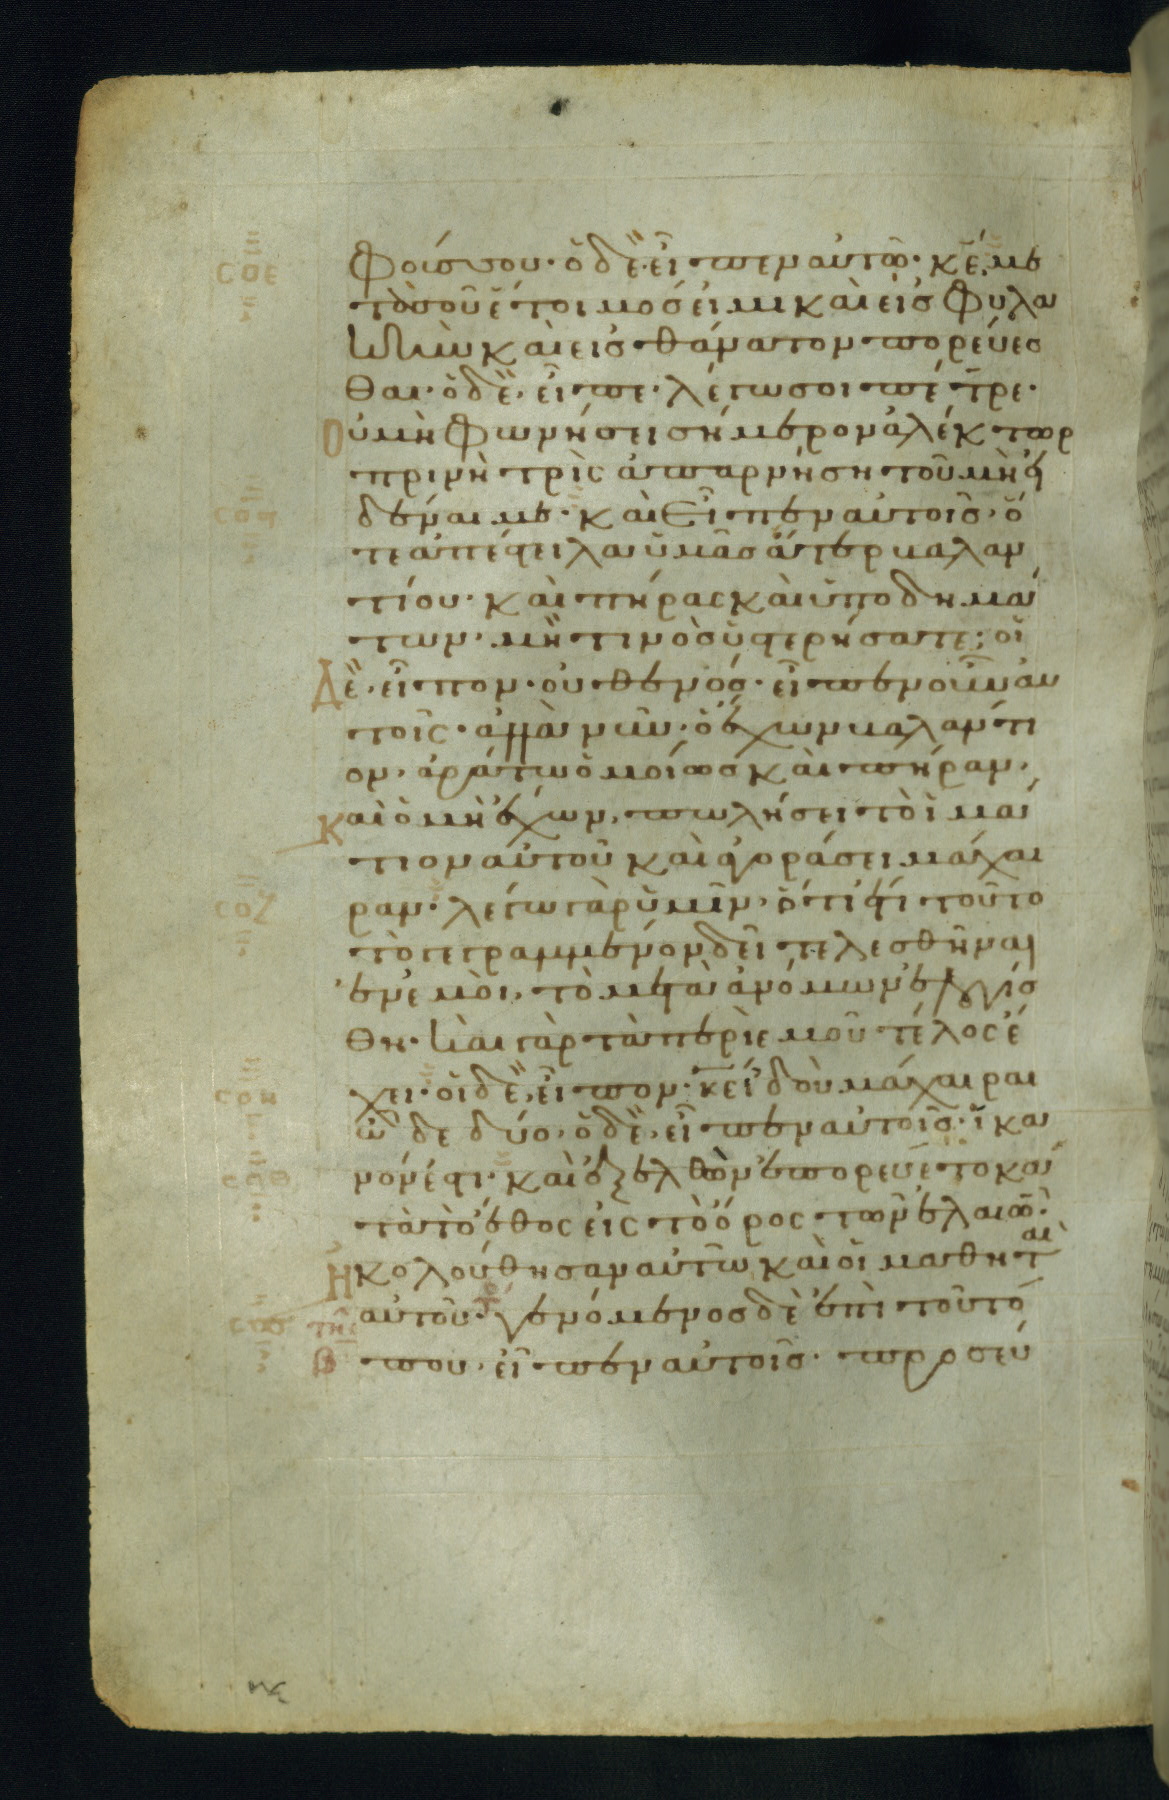 σοε
φοίσσου· ὁ δὲ· εἶπεν αὐτῶ· κε̄ μὲ
τὰ σοῦ ἕτοιμόσ εἰμι καὶ εἰσ φυλα
κὴν καὶ εἰσ θάνατον πορεύεσ
θαι· ὁ δὲ· εἶπε· λέγω σοι πέτρε·
Οὐ μὴ φωνήσει σήμερον ἀλέκτωρ
πρὶν ἢ τρὶς ἀπαρνήση τοῦ μὴ εἰ
σος
δέναι με· καὶ εἶπεν αὐτοῖσ· ὅ
τε ἀπέστειλα ὑμᾶσ ἄτερ βαλαν
τίου· καὶ πήρας καὶ ὑποδημά
των· μή τινὸσ ὑστερήσατε; οἱ
Δὲ· εἶπον· οὐθενόσ· εἶπεν οὖν αὐ
τοῖς· ἀλλὰ νῦν· ὁ ἔχων βαλάντι
ον· ἀράτω ὁμοίωσ καὶ πήραν·
Καὶ ὁ μὴ ἔχων, πωλήσει τὸ ἱμά
τιον αὐτοῦ καὶ ἀγοράσει μάχαι
σοζ
ραν· λέγω γὰρ ὑμῖν· ὅτι ἔτι τοῦτο
τὸ γεγραμμένον δεῖ τελεσθῆναι
ἐν ἐμοὶ, τὸ μετὰ ἀνόμων ἐλογίσ
θη· καὶ γὰρ τὰ περὶ ἐμοῦ τέλος ἔ
σοη
χει· οἱ δὲ, εἶπον· κε̄ ἰδοὺ μάχαιραι
ὧδε δύο· ὁ δὲ· εἶπεν αὐτοῖσ· ἱκα
σοθ
νόν ἐστι· καὶ ἐξελθὼν ἐπορεύετο κα
τὰ τὸ ἔθος εἰς τὸ ὄρος τῶν ἐλαιῶ·
Ἠκολούθησαν αὐτῶ καὶ οἱ μαθητ
αὶ
αὐτοῦ· γενόμενοσ δὲ ἐπὶ τοῦ τό
που· εἶπεν αὐτοῖσ· προσεύ